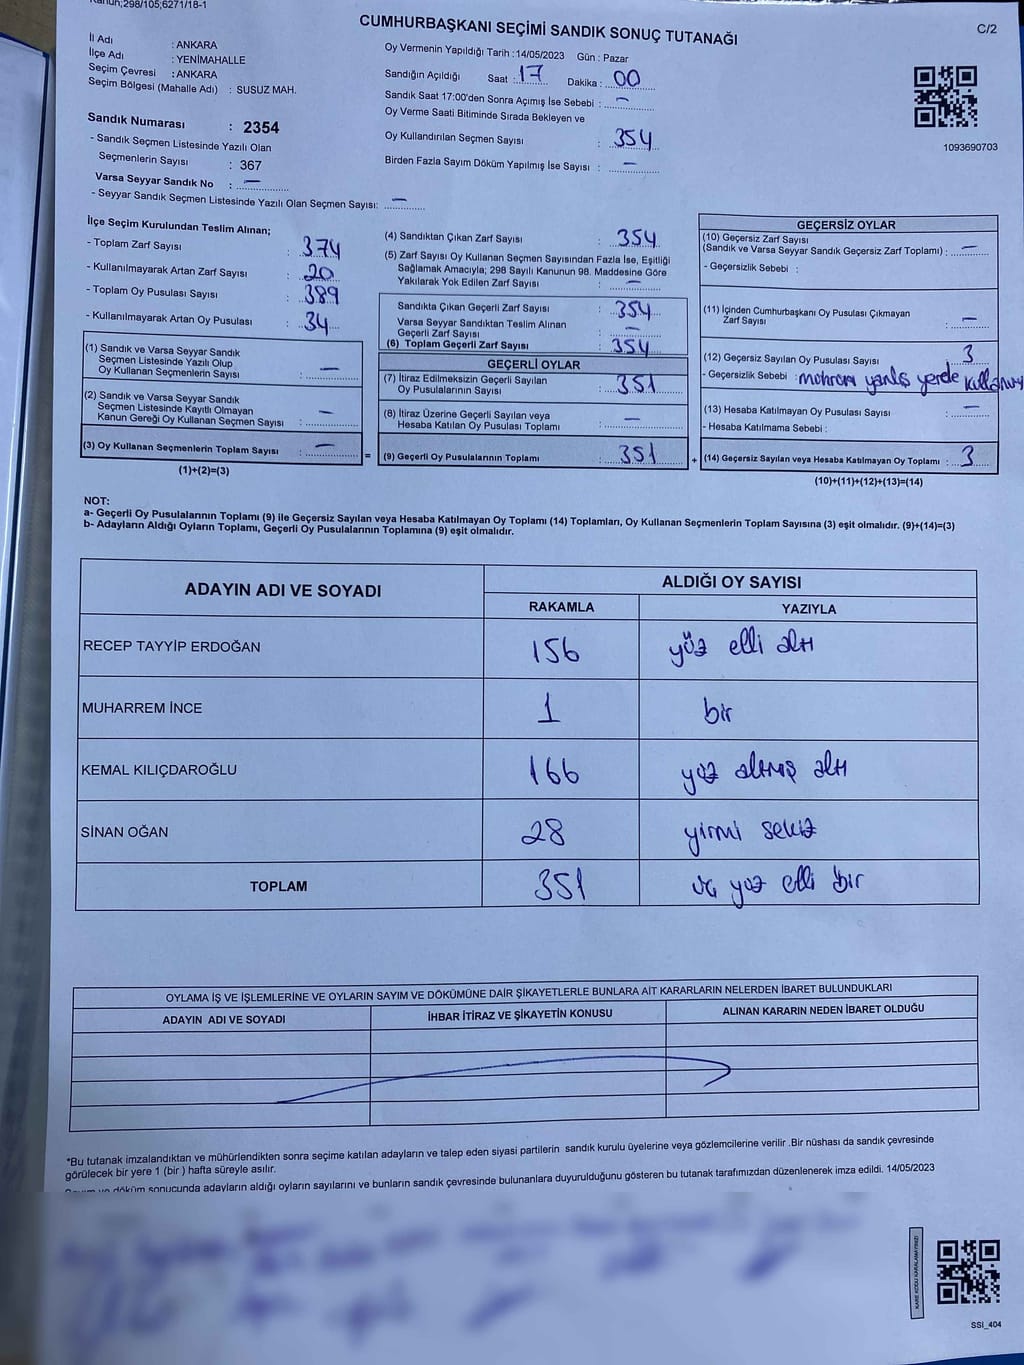 Kanun;298/105;6271/18-1
CUMHURBAŞKANI SEÇİMİ SANDIK SONUÇ TUTANAĞI
C/2
İl Adı : ANKARA
İlçe Adı : YENİMAHALLE
Seçim Çevresi : ANKARA
Seçim Bölgesi (Mahalle Adı) : SUSUZ MAH.
Sandık Numarası : 2354
- Sandık Seçmen Listesinde Yazılı Olan
Seçmenlerin Sayısı : 367
Varsa Seyyar Sandık No : —
- Seyyar Sandık Seçmen Listesinde Yazılı Olan Seçmen Sayısı: —
Oy Vermenin Yapıldığı Tarih :14/05/2023 Gün : Pazar
Sandığın Açıldığı Saat : 17 Dakika : 00
Sandık Saat 17:00'den Sonra Açımış İse Sebebi : —
Oy Verme Saati Bitiminde Sırada Bekleyen ve
Oy Kullandırılan Seçmen Sayısı : 354
Birden Fazla Sayım Döküm Yapılmış İse Sayısı : —
1093690703
İlçe Seçim Kurulundan Teslim Alınan;
- Toplam Zarf Sayısı : 374
- Kullanılmayarak Artan Zarf Sayısı : 20
- Toplam Oy Pusulası Sayısı : 389
- Kullanılmayarak Artan Oy Pusulası : 34
(1) Sandık ve Varsa Seyyar Sandık
Seçmen Listesinde Yazılı Olup
Oy Kullanan Seçmenlerin Sayısı : —
(2) Sandık ve Varsa Seyyar Sandık
Seçmen Listesinde Kayıtlı Olmayan
Kanun Gereği Oy Kullanan Seçmen Sayısı : —
(3) Oy Kullanan Seçmenlerin Toplam Sayısı : —
(1)+(2)=(3)
(4) Sandıktan Çıkan Zarf Sayısı : 354
(5) Zarf Sayısı Oy Kullanan Seçmen Sayısından Fazla İse, Eşitliği
Sağlamak Amacıyla; 298 Sayılı Kanunun 98. Maddesine Göre
Yakılarak Yok Edilen Zarf Sayısı : —
Sandıkta Çıkan Geçerli Zarf Sayısı : 354
Varsa Seyyar Sandıktan Teslim Alınan
Geçerli Zarf Sayısı : —
(6) Toplam Geçerli Zarf Sayısı : 354
GEÇERLİ OYLAR
(7) İtiraz Edilmeksizin Geçerli Sayılan
Oy Pusulalarının Sayısı : 351
(8) İtiraz Üzerine Geçerli Sayılan veya
Hesaba Katılan Oy Pusulası Toplamı : —
= (9) Geçerli Oy Pusulalarının Toplamı : 351
GEÇERSİZ OYLAR
(10) Geçersiz Zarf Sayısı
(Sandık ve Varsa Seyyar Sandık Geçersiz Zarf Toplamı) : —
- Geçersizlik Sebebi :
(11) İçinden Cumhurbaşkanı Oy Pusulası Çıkmayan
Zarf Sayısı : —
(12) Geçersiz Sayılan Oy Pusulası Sayısı : 3
- Geçersizlik Sebebi : yanlış yerde
(13) Hesaba Katılmayan Oy Pusulası Sayısı : —
- Hesaba Katılmama Sebebi :
+ (14) Geçersiz Sayılan veya Hesaba Katılmayan Oy Toplamı : 3
(10)+(11)+(12)+(13)=(14)
NOT:
a- Geçerli Oy Pusulalarının Toplamı (9) ile Geçersiz Sayılan veya Hesaba Katılmayan Oy Toplamı (14) Toplamları, Oy Kullanan Seçmenlerin Toplam Sayısına (3) eşit olmalıdır. (9)+(14)=(3)
b- Adayların Aldığı Oyların Toplamı, Geçerli Oy Pusulalarının Toplamına (9) eşit olmalıdır.
ADAYIN ADI VE SOYADI ALDIĞI OY SAYISI
RAKAMLA YAZIYLA
RECEP TAYYİP ERDOĞAN 156 yüz elli altı
MUHARREM İNCE 1 bir
KEMAL KILIÇDAROĞLU 166 yüz altmış altı
SİNAN OĞAN 28 yirmi sekiz
TOPLAM 351 üç yüz elli bir
OYLAMA İŞ VE İŞLEMLERİNE VE OYLARIN SAYIM VE DÖKÜMÜNE DAİR ŞİKAYETLERLE BUNLARA AİT KARARLARIN NELERDEN İBARET BULUNDUKLARI
ADAYIN ADI VE SOYADI İHBAR İTİRAZ VE ŞİKAYETİN KONUSU ALINAN KARARIN NEDEN İBARET OLDUĞU
*Bu tutanak imzalandıktan ve mühürlendikten sonra seçime katılan adayların ve talep eden siyasi partilerin sandık kurulu üyelerine veya gözlemcilerine verilir .Bir nüshası da sandık çevresinde
görülecek bir yere 1 (bir ) hafta süreyle asılır.
Sayım ve döküm sonucunda adayların aldığı oyların sayılarını ve bunların sandık çevresinde bulunanlara duyurulduğunu gösteren bu tutanak tarafımızdan düzenlenerek imza edildi. 14/05/2023
KARE KODU KARALAMAYINIZ!
SSI_404